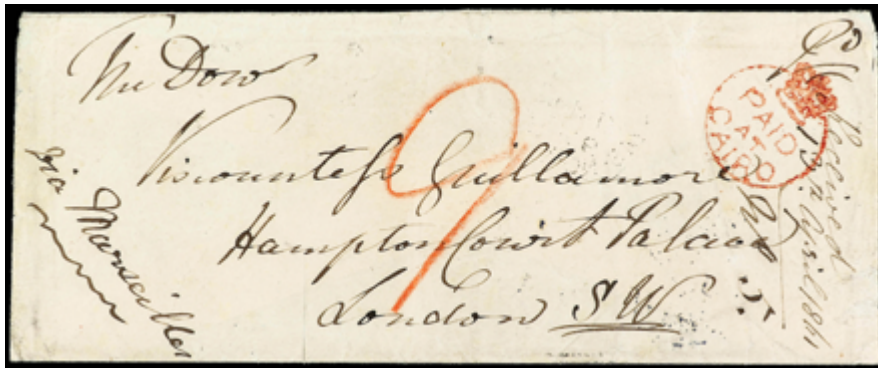 The Dow
Viscountess Guillamore
Hampton Court Palace
London SW
via Marseilles
9
PAID
AT
CAIRO
Received
13th April 1861